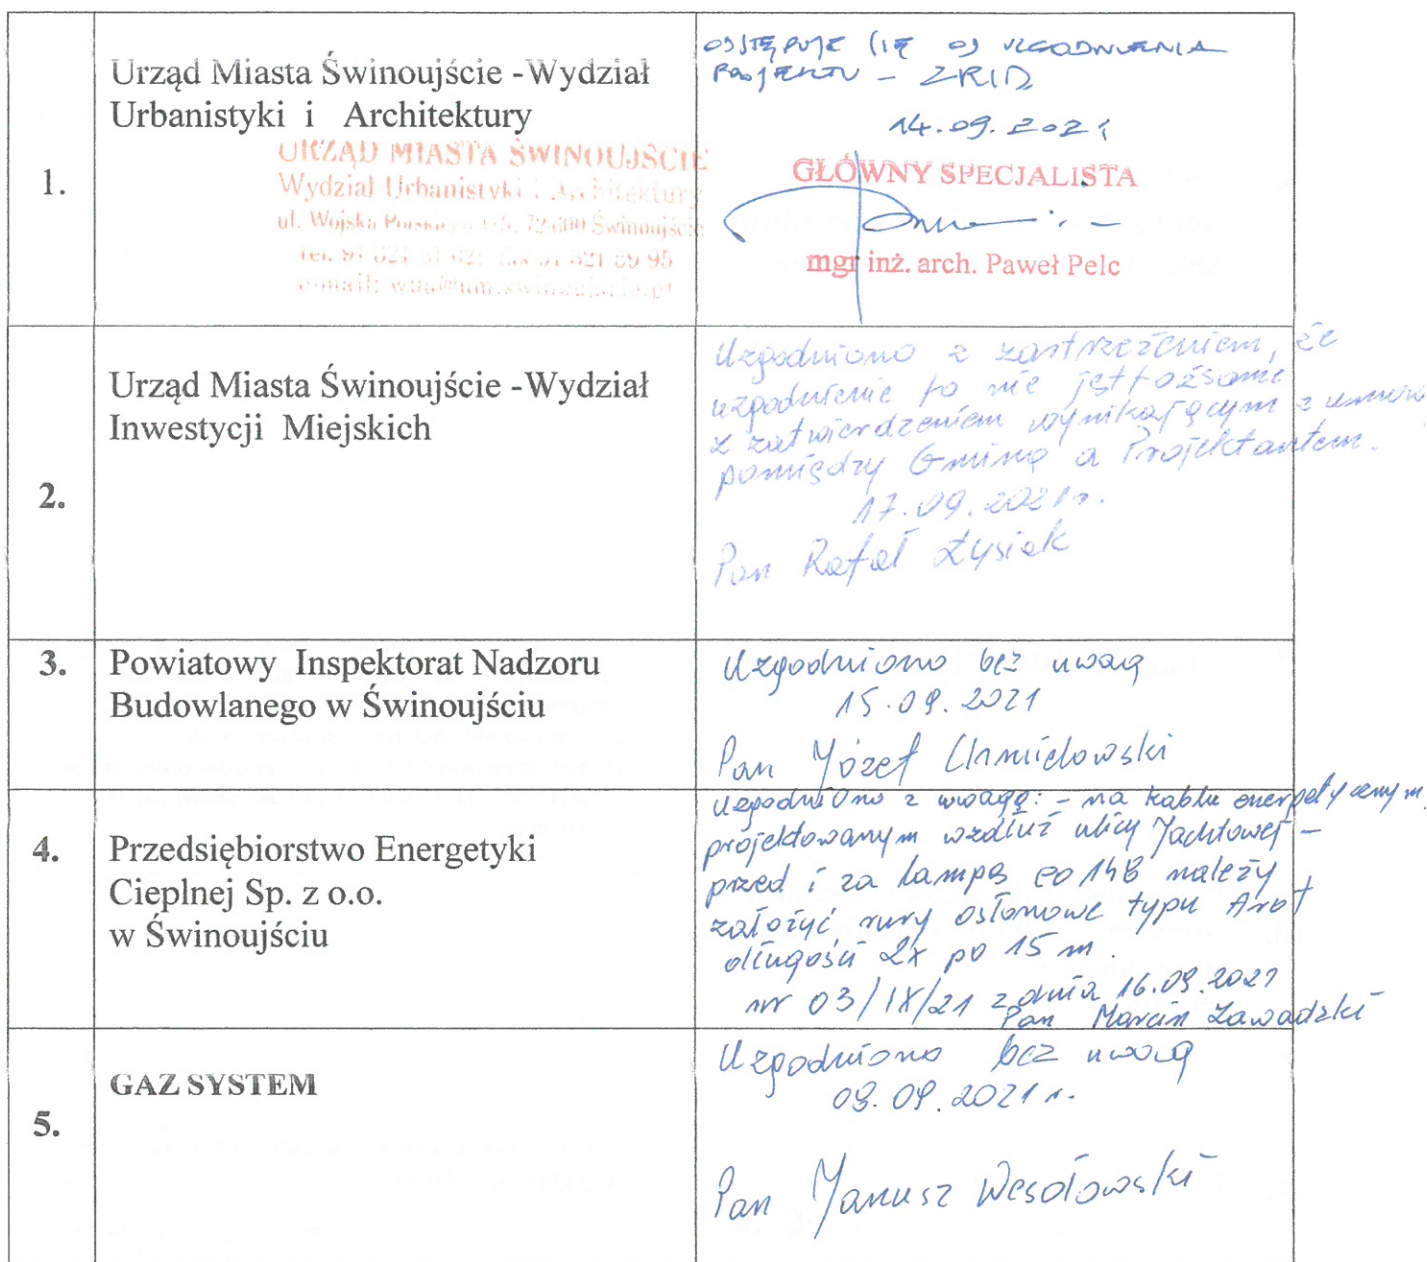 1.
Urząd Miasta Świnoujście -Wydział
Urbanistyki i Architektury
URZĄD MIASTA ŚWINOUJŚCIE
Wydział Urbanistyki i Architektury
ul. Wojska Polskiego 72-600 Świnoujście
tel. 91 321 fax 91 321 59 95
e-mail: wua@um.swinoujscie.pl
ODSTĘPUJE SIĘ OD UZGODNIENIA
PROJEKTU - ZRID
14.09.2021
GŁÓWNY SPECJALISTA
mgr inż. arch. Paweł Pelc
2.
Urząd Miasta Świnoujście -Wydział
Inwestycji Miejskich
Uzgodniono z zastrzeżeniem, że
uzgodnienie to nie jest tożsame
z zatwierdzeniem wynikającym z umowy
pomiędzy Gminą a Projektantem.
17.09.2021r.
Pan Rafał Łysiak
3.
Powiatowy Inspektorat Nadzoru
Budowlanego w Świnoujściu
Uzgodniono bez uwag
15.09.2021
Pan Józef Chmielowski
4.
Przedsiębiorstwo Energetyki
Cieplnej Sp. z o.o.
w Świnoujściu
Uzgodniono z uwagą: - na kablu energetycznym
projektowanym wzdłuż ulicy Jachtowej -
przed i za lampą eo 14B należy
założyć rury osłonowe typu Arot
długości 2x po 15 m.
nr 03/IX/21 z dnia 16.09.2021
Pan Marcin Zawadzki
5.
GAZ SYSTEM
Uzgodniono bez uwag
09.09.2021 r.
Pan Janusz Wesołowski